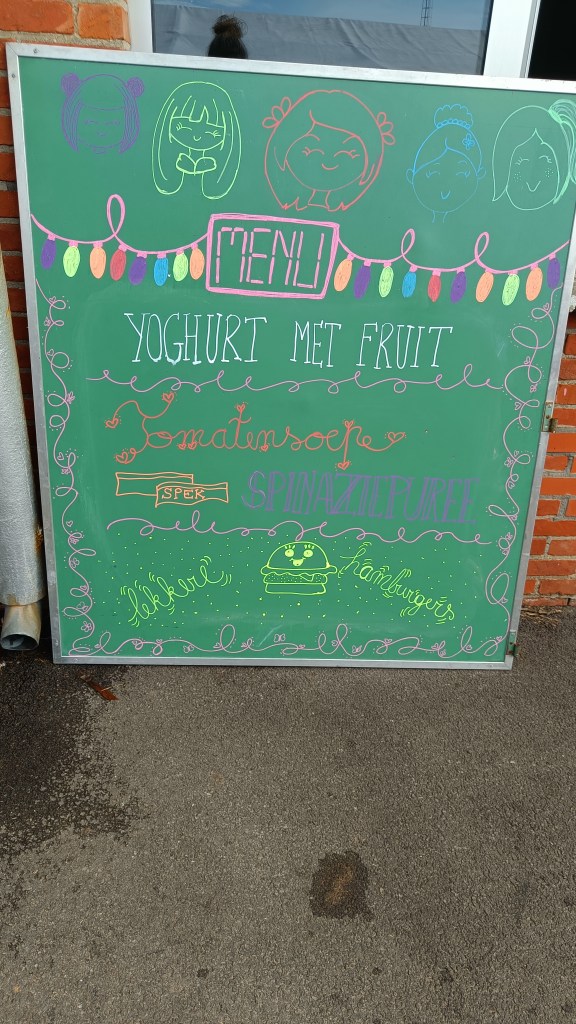 MENU
YOGHURT MET FRUIT
Tomatensoepe
SPEK SPINAZIEPUREE
lekkere hamburgers